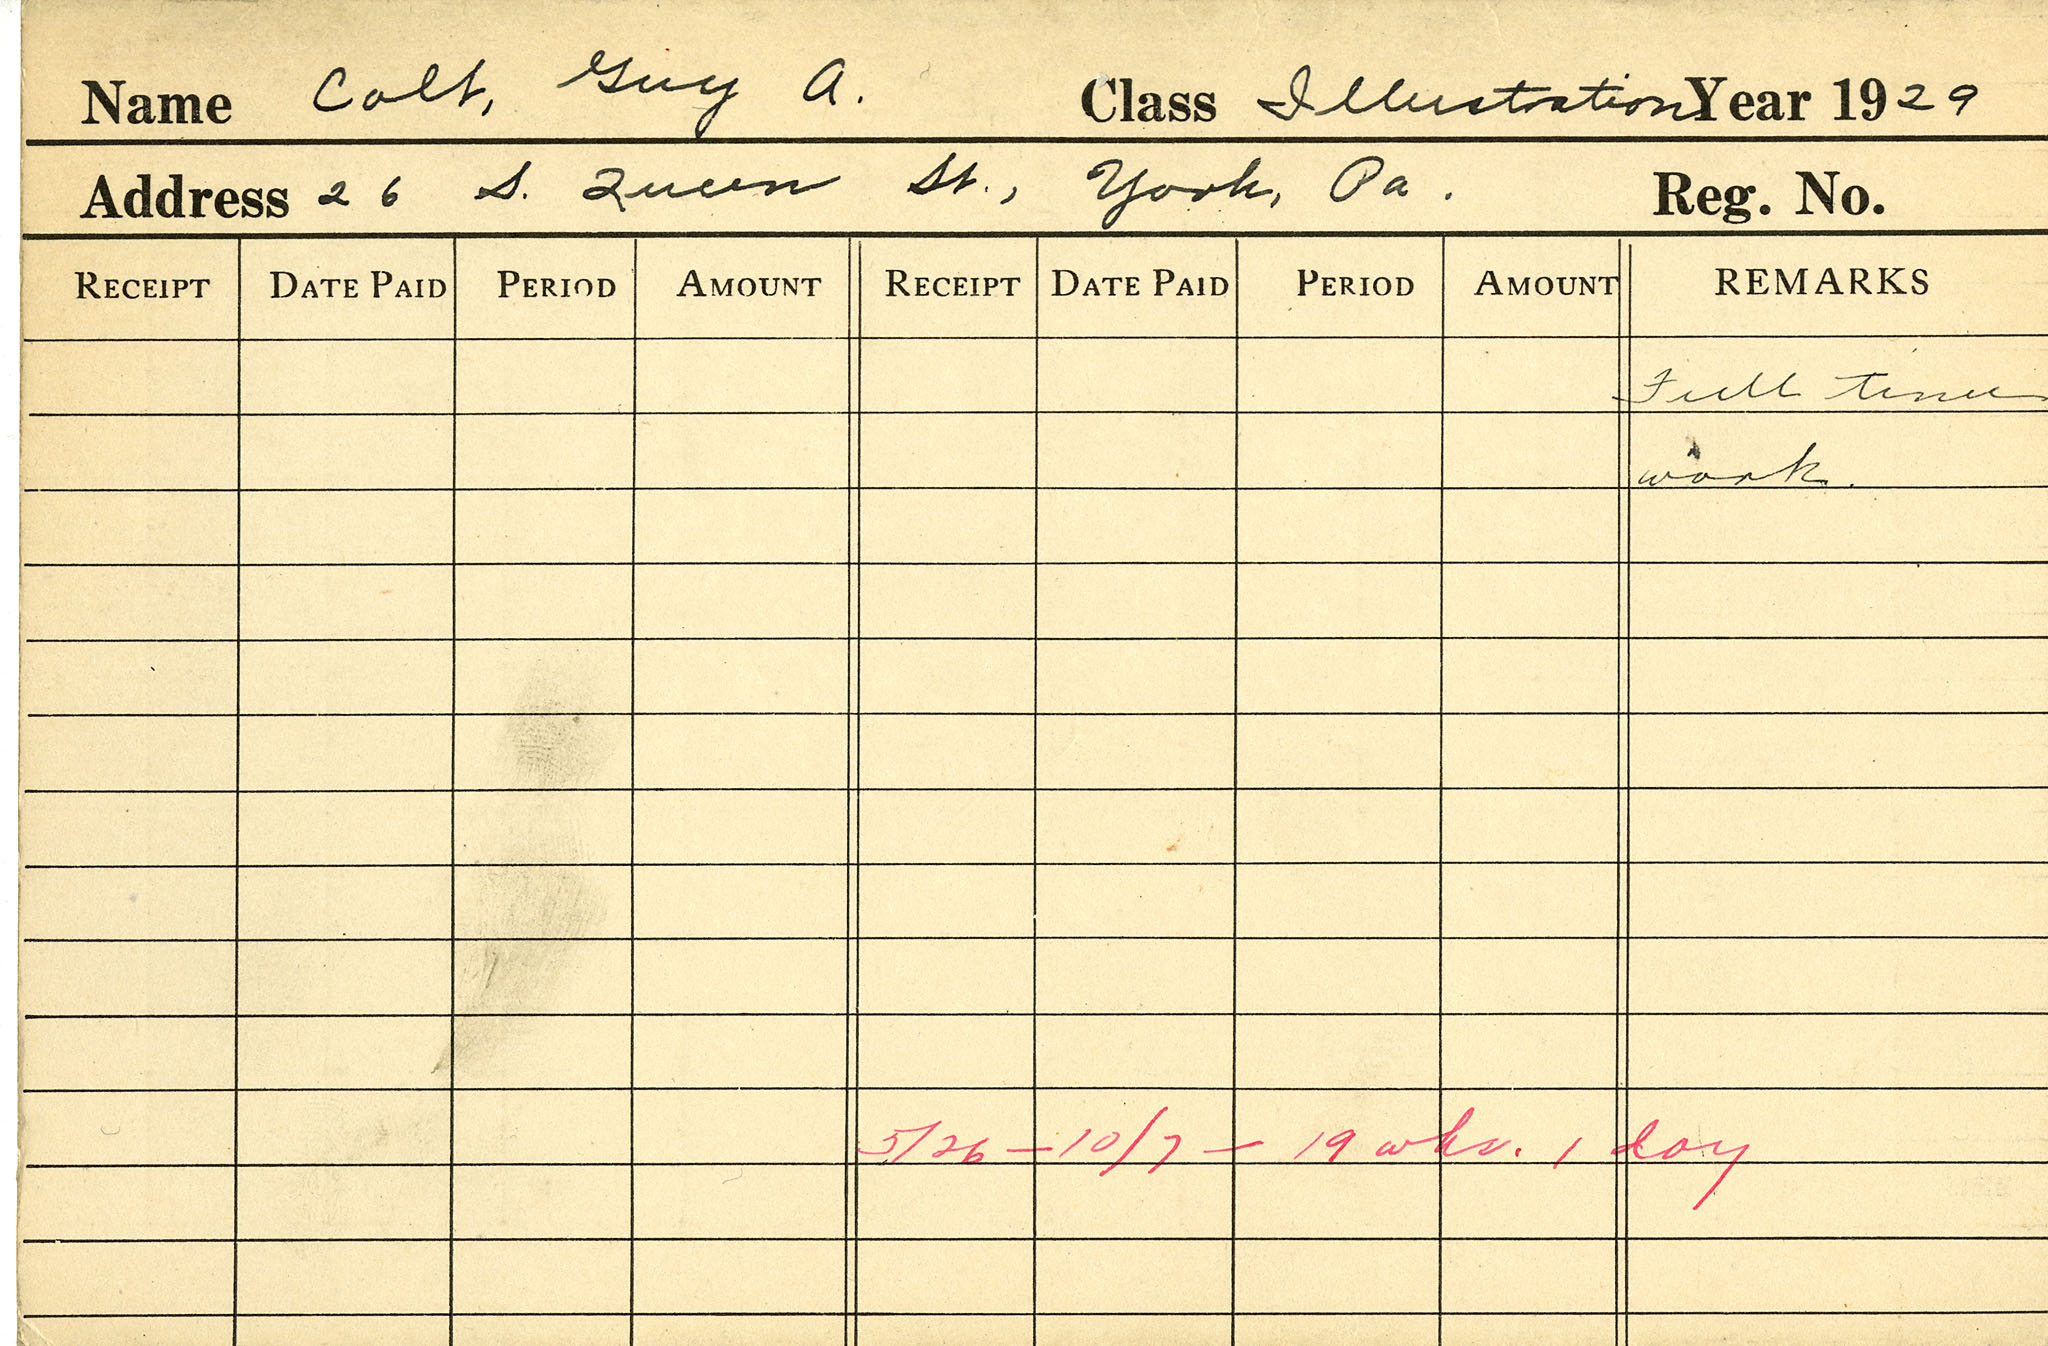 Name Colt, Guy A. Class Illustration Year 1929
Address 26 S. Queen St., York, Pa. Reg. No.
RECEIPT DATE PAID PERIOD AMOUNT RECEIPT DATE PAID PERIOD AMOUNT REMARKS
Full time
work.
5/26 – 10/7 – 19 wks. 1 day